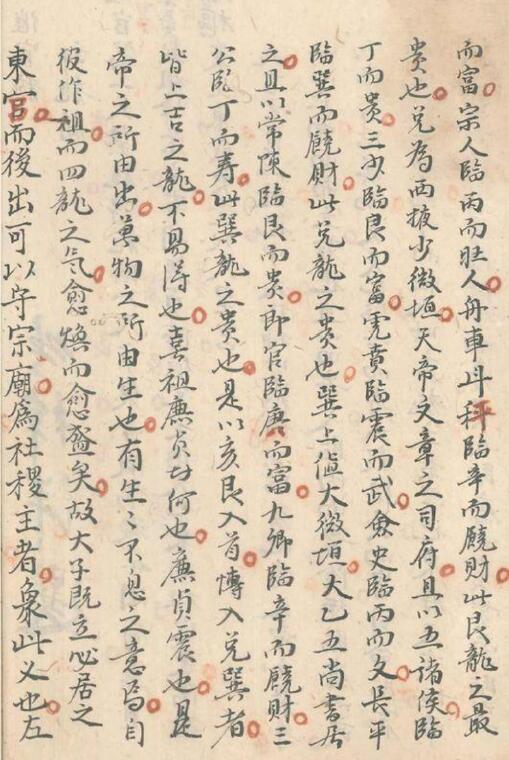 而富宗人臨丙而旺人舟車斗科臨辛而饒財此艮龍之最
貴也兌為西掖少微垣天帝文章之司府且以五諸侯臨
丁而貴三少臨艮而富虎賁臨震而武倉史臨丙而文長平
臨巽而饒財此兌龍之貴也巽上値大微垣大乙五尚書居
之且以常陳臨艮而貴即官臨庚而富九卿臨辛而饒財三
公臨丁而壽此巽龍之貴也是以亥艮入首愽入兌巽者
皆上吉之龍不易淂也喜祖廉貞者何也廉貞震也是
帝之所由出萬物之所由生也有生〻不息之意焉自
彼作祖而四龍之气愈煥而愈盛矣故大子既立必居之
東宮而後出可以守宗廟為社稷主者象此义也左